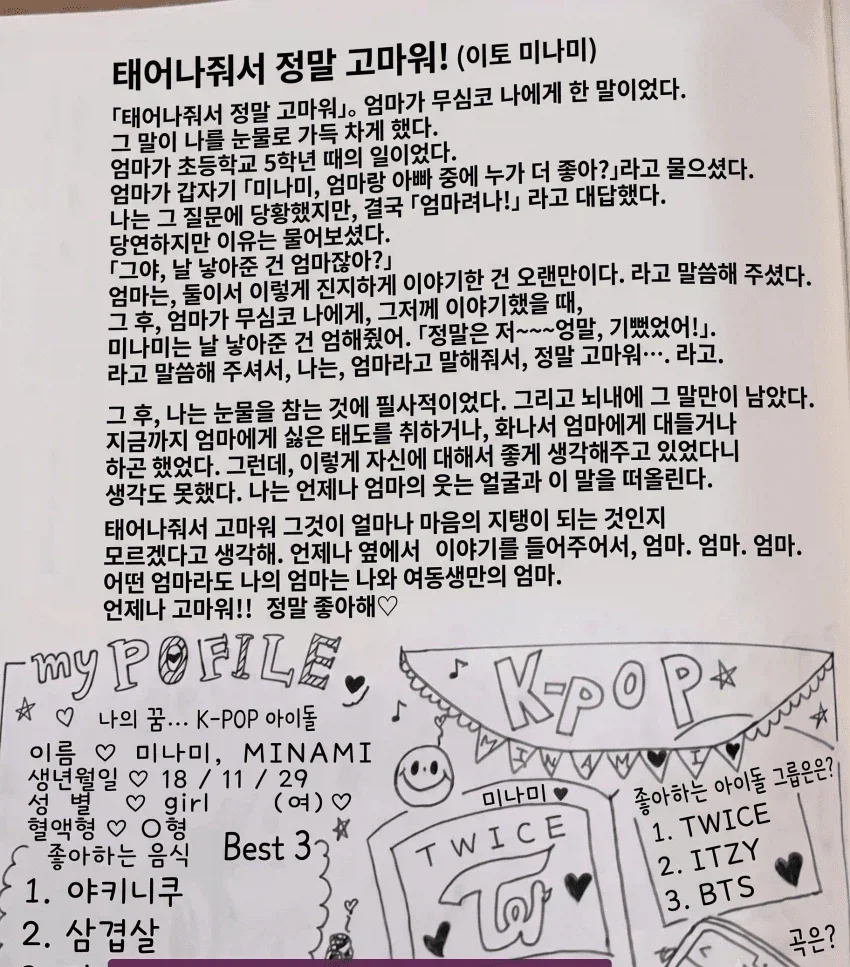 태어나줘서 정말 고마워! (이토 미나미)
「태어나줘서 정말 고마워」。 엄마가 무심코 나에게 한 말이었다.
그 말이 나를 눈물로 가득 차게 했다.
엄마가 초등학교 5학년 때의 일이었다.
엄마가 갑자기 「미나미, 엄마랑 아빠 중에 누가 더 좋아?」라고 물으셨다.
나는 그 질문에 당황했지만, 결국 「엄마려나!」 라고 대답했다.
당연하지만 이유는 물어보셨다.
「그야, 날 낳아준 건 엄마잖아?」
엄마는, 둘이서 이렇게 진지하게 이야기한 건 오랜만이다. 라고 말씀해 주셨다.
그 후, 엄마가 무심코 나에게, 그저께 이야기했을 때,
미나미는 날 낳아준 건 엄해줬어. 「정말은 저~~~엉말, 기뻤었어!」.
라고 말씀해 주셔서, 나는, 엄마라고 말해줘서, 정말 고마워···. 라고.
그 후, 나는 눈물을 참는 것에 필사적이었다. 그리고 뇌내에 그 말만이 남았다.
지금까지 엄마에게 싫은 태도를 취하거나, 화나서 엄마에게 대들거나
하곤 했었다. 그런데, 이렇게 자신에 대해서 좋게 생각해주고 있었다니
생각도 못했다. 나는 언제나 엄마의 웃는 얼굴과 이 말을 떠올린다.
태어나줘서 고마워 그것이 얼마나 마음의 지탱이 되는 것인지
모르겠다고 생각해. 언제나 옆에서 이야기를 들어주어서, 엄마. 엄마. 엄마.
어떤 엄마라도 나의 엄마는 나와 여동생만의 엄마.
언제나 고마워!! 정말 좋아해♡
my POFILE
나의 꿈... K-POP 아이돌
이름 ♡ 미나미, MINAMI
생년월일 ♡ 18 / 11 / 29
성 별 ♡ girl (여)♡
혈액형 ♡ O형
좋아하는 음식 Best 3
1. 야키니쿠
2. 삼겹살
K-POP
MINAMI
미나미♥
TWICE
좋아하는 아이돌 그룹은?
1. TWICE
2. ITZY
3. BTS
곡은?